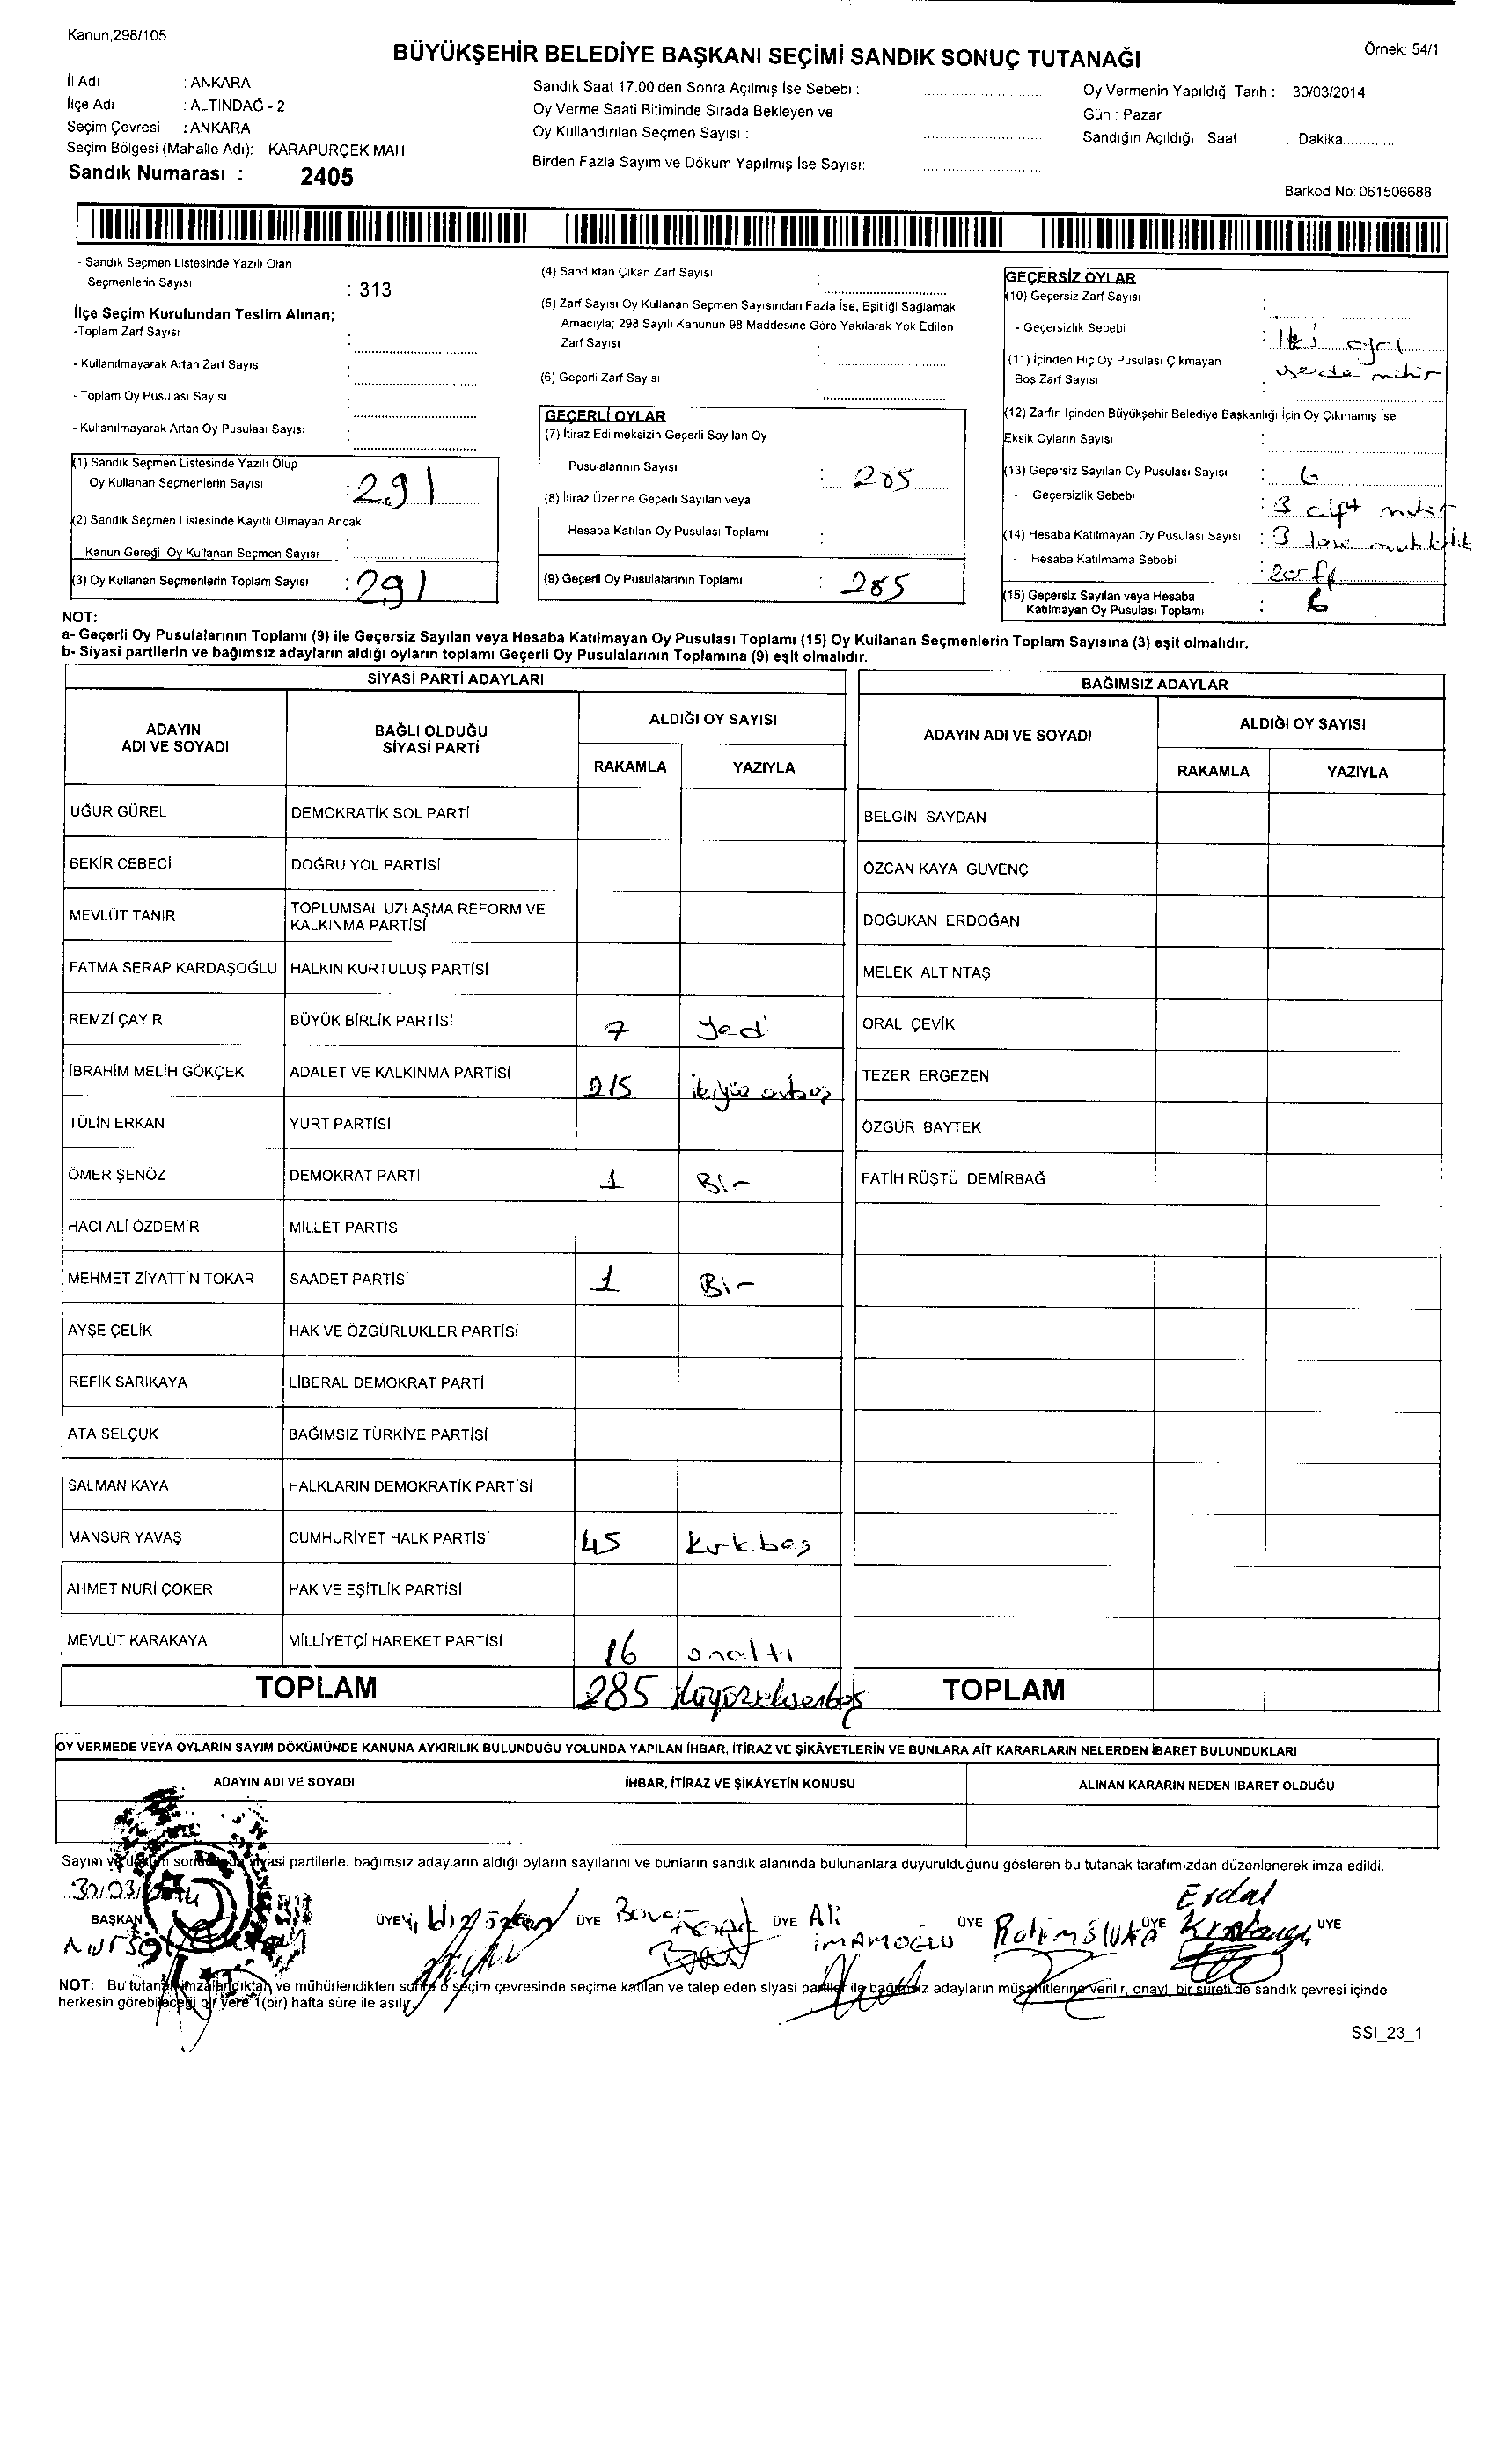 Kanun;298/105
BÜYÜKŞEHİR BELEDİYE BAŞKANI SEÇİMİ SANDIK SONUÇ TUTANAĞI
Örnek: 54/1
İl Adı : ANKARA
İlçe Adı : ALTINDAĞ - 2
Seçim Çevresi : ANKARA
Seçim Bölgesi (Mahalle Adı): KARAPÜRÇEK MAH.
Sandık Numarası : 2405
Sandık Saat 17.00'den Sonra Açılmış İse Sebebi :
Oy Verme Saati Bitiminde Sırada Bekleyen ve
Oy Kullandırılan Seçmen Sayısı :
Birden Fazla Sayım ve Döküm Yapılmış İse Sayısı:
Oy Vermenin Yapıldığı Tarih : 30/03/2014
Gün : Pazar
Sandığın Açıldığı Saat :............ Dakika............
Barkod No: 061506688
- Sandık Seçmen Listesinde Yazılı Olan
Seçmenlerin Sayısı : 313
İlçe Seçim Kurulundan Teslim Alınan;
-Toplam Zarf Sayısı :
- Kullanılmayarak Artan Zarf Sayısı :
- Toplam Oy Pusulası Sayısı :
- Kullanılmayarak Artan Oy Pusulası Sayısı :
(1) Sandık Seçmen Listesinde Yazılı Olup
Oy Kullanan Seçmenlerin Sayısı : 291
(2) Sandık Seçmen Listesinde Kayıtlı Olmayan Ancak
Kanun Gereği Oy Kullanan Seçmen Sayısı :
(3) Oy Kullanan Seçmenlerin Toplam Sayısı : 291
(4) Sandıktan Çıkan Zarf Sayısı :
(5) Zarf Sayısı Oy Kullanan Seçmen Sayısından Fazla İse, Eşitliği Sağlamak
Amacıyla; 298 Sayılı Kanunun 98.Maddesine Göre Yakılarak Yok Edilen
Zarf Sayısı :
(6) Geçerli Zarf Sayısı :
GEÇERLİ OYLAR
(7) İtiraz Edilmeksizin Geçerli Sayılan Oy
Pusulalarının Sayısı : 285
(8) İtiraz Üzerine Geçerli Sayılan veya
Hesaba Katılan Oy Pusulası Toplamı :
(9) Geçerli Oy Pusulalarının Toplamı : 285
GEÇERSİZ OYLAR
(10) Geçersiz Zarf Sayısı :
- Geçersizlik Sebebi : İki ayrı
(11) İçinden Hiç Oy Pusulası Çıkmayan
yerde mühür
Boş Zarf Sayısı :
(12) Zarfın İçinden Büyükşehir Belediye Başkanlığı İçin Oy Çıkmamış İse
Eksik Oyların Sayısı :
(13) Geçersiz Sayılan Oy Pusulası Sayısı : 6
- Geçersizlik Sebebi : 3 çift
(14) Hesaba Katılmayan Oy Pusulası Sayısı : 3
- Hesaba Katılmama Sebebi :
(15) Geçersiz Sayılan veya Hesaba
Katılmayan Oy Pusulası Toplamı : 6
NOT:
a- Geçerli Oy Pusulalarının Toplamı (9) ile Geçersiz Sayılan veya Hesaba Katılmayan Oy Pusulası Toplamı (15) Oy Kullanan Seçmenlerin Toplam Sayısına (3) eşit olmalıdır.
b- Siyasi partilerin ve bağımsız adayların aldığı oyların toplamı Geçerli Oy Pusulalarının Toplamına (9) eşit olmalıdır.
SİYASİ PARTİ ADAYLARI
ADAYIN ADI VE SOYADI
BAĞLI OLDUĞU SİYASİ PARTİ
ALDIĞI OY SAYISI
RAKAMLA YAZIYLA
UĞUR GÜREL DEMOKRATİK SOL PARTİ
BEKİR CEBECİ DOĞRU YOL PARTİSİ
MEVLÜT TANIR TOPLUMSAL UZLAŞMA REFORM VE KALKINMA PARTİSİ
FATMA SERAP KARDAŞOĞLU HALKIN KURTULUŞ PARTİSİ
REMZİ ÇAYIR BÜYÜK BİRLİK PARTİSİ 7 Yedi
İBRAHİM MELİH GÖKÇEK ADALET VE KALKINMA PARTİSİ 215 ikiyüz onbeş
TÜLİN ERKAN YURT PARTİSİ
ÖMER ŞENÖZ DEMOKRAT PARTİ 1 Bir
HACI ALİ ÖZDEMİR MİLLET PARTİSİ
MEHMET ZİYATTİN TOKAR SAADET PARTİSİ 1 Bir
AYŞE ÇELİK HAK VE ÖZGÜRLÜKLER PARTİSİ
REFİK SARIKAYA LİBERAL DEMOKRAT PARTİ
ATA SELÇUK BAĞIMSIZ TÜRKİYE PARTİSİ
SALMAN KAYA HALKLARIN DEMOKRATİK PARTİSİ
MANSUR YAVAŞ CUMHURİYET HALK PARTİSİ 45 Kırkbeş
AHMET NURİ ÇOKER HAK VE EŞİTLİK PARTİSİ
MEVLÜT KARAKAYA MİLLİYETÇİ HAREKET PARTİSİ 16 onaltı
TOPLAM 285 ikiyüzseksenbeş
BAĞIMSIZ ADAYLAR
ADAYIN ADI VE SOYADI
ALDIĞI OY SAYISI
RAKAMLA YAZIYLA
BELGİN SAYDAN
ÖZCAN KAYA GÜVENÇ
DOĞUKAN ERDOĞAN
MELEK ALTINTAŞ
ORAL ÇEVİK
TEZER ERGEZEN
ÖZGÜR BAYTEK
FATİH RÜŞTÜ DEMİRBAĞ
TOPLAM
OY VERMEDE VEYA OYLARIN SAYIM DÖKÜMÜNDE KANUNA AYKIRILIK BULUNDUĞU YOLUNDA YAPILAN İHBAR, İTİRAZ VE ŞİKÂYETLERİN VE BUNLARA AİT KARARLARIN NELERDEN İBARET BULUNDUKLARI
ADAYIN ADI VE SOYADI İHBAR, İTİRAZ VE ŞİKÂYETİN KONUSU ALINAN KARARIN NEDEN İBARET OLDUĞU
Sayım ve döküm sonucunda siyasi partilerle, bağımsız adayların aldığı oyların sayılarını ve bunların sandık alanında bulunanlara duyurulduğunu gösteren bu tutanak tarafımızdan düzenlenerek imza edildi.
30/03/2014
BAŞKAN ÜYE ÜYE ÜYE Ali İMAMOĞLU ÜYE ÜYE Erdal ÜYE
NOT: Bu tutanak imzalandıktan ve mühürlendikten sonra o seçim çevresinde seçime katılan ve talep eden siyasi partiler ile bağımsız adayların müşahitlerine verilir, onaylı bir sureti de sandık çevresi içinde
herkesin görebileceği bir yere 1(bir) hafta süre ile asılır.
SSI_23_1